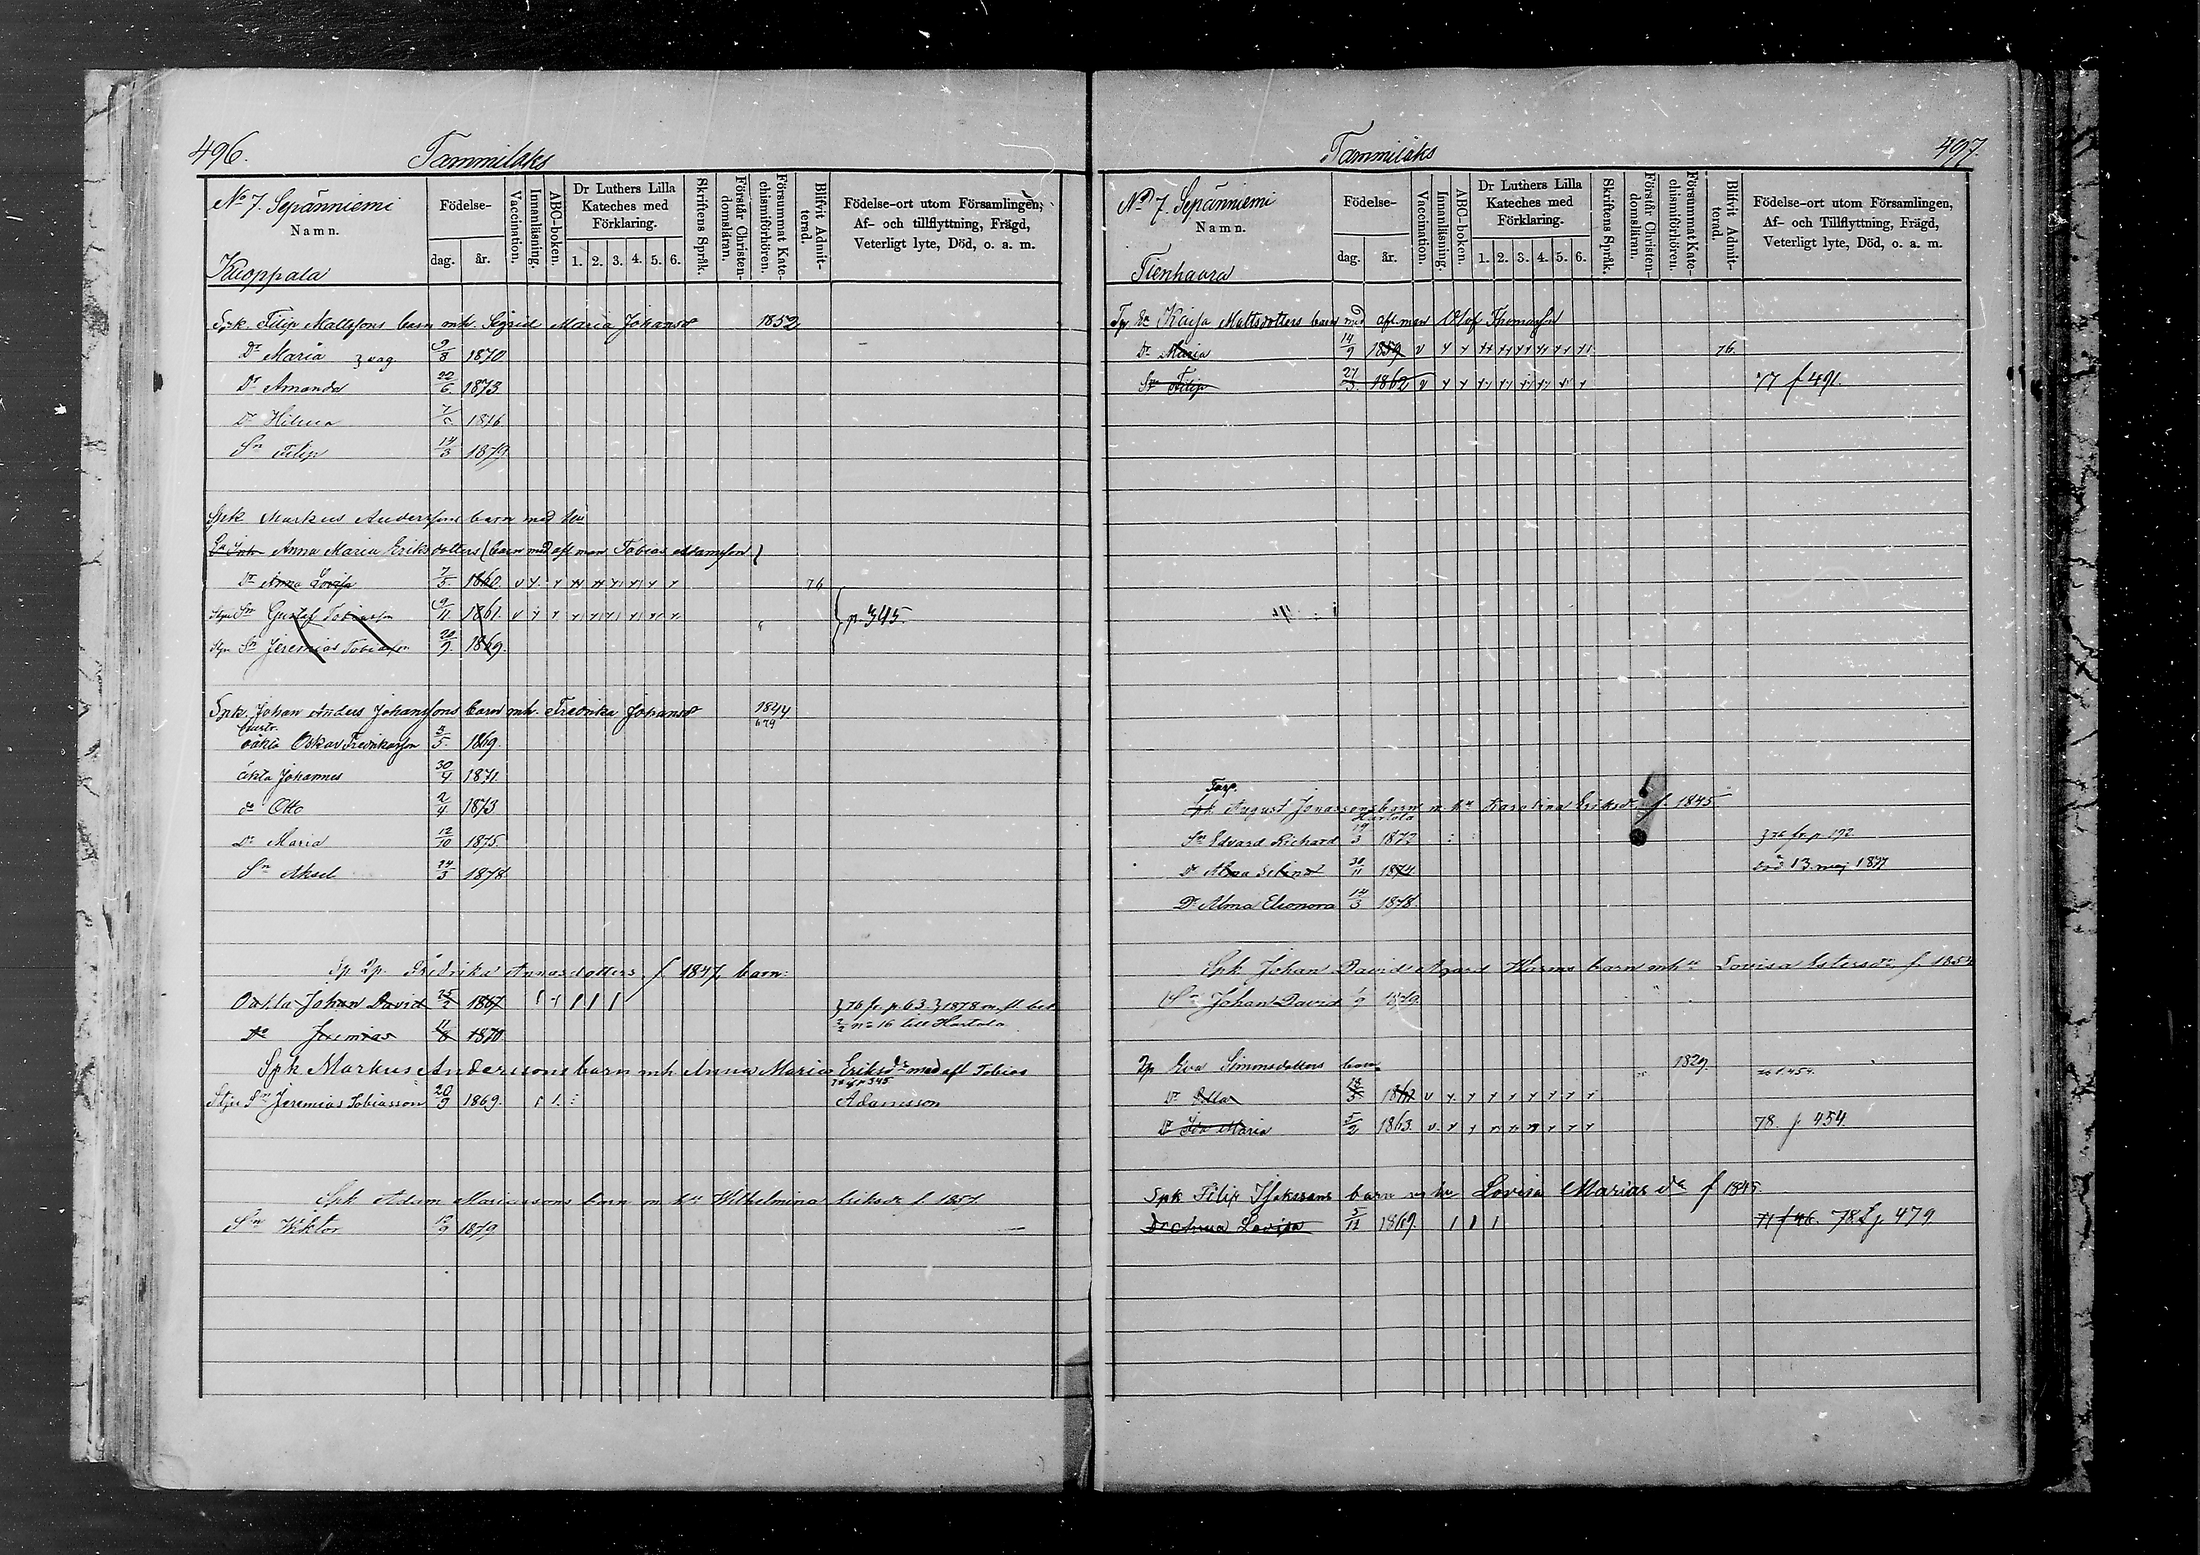 496.
Tammilaks
No 7. Sepänniemi
Namn.
Kuoppala
Födelse-
dag.
år.
Vaccination.
Innanläsning.
ABC-boken.
Dr Luthers Lilla
Kateches med
Förklaring.
1. 2. 3. 4. 5. 6.
Skriftens Språk.
Förstår Christen-
domsläran.
Försummat Kate-
chismiförhören.
Blifvit Admit-
terad.
Födelse-ort utom Församlingen,
Af- och tillflyttning, Frägd,
Veterligt lyte, Död, o. a. m.
Spk. Filip Mattssons barn mh. Sigrid Maria Johansd 1852
Dr Maria 9/8 1870
Dr Amanda 22/6 1873
Dr Hilma 1876
Sn Filip 14/3 1879
Spk Markus Anderssons barn med hu
Anna Maria Eriksdotters (barn med afl. man Tobias Adamsson)
Dr Anna Lovisa 7/5 1860. v 76
Stju Sn Gustaf Tobiasson 9/11 1861. v
p. 345.
Stju Sn Jeremias Tobiasson 20/9 1869.
Spk. Johan Anders Johanssons barn mh. Fredrika Johansd 1844
Hustr.
oäkta Oskar Fredriksson 5/5 1869.
äkta Johannes 30/4 1871
do Otto 2/4 1873
Dr Maria 12/10 1875.
Sn Aksel 24/3 1878
Fredrika Annasdotters, f. 1847, barn:
Oäkta Johan David 25/2 1867
76 fr. p. 63. 1878 m. fl. bet.
Do Jeremias 11/8 1870
2/2 no 16 till Hartola
Spk Markus Anderssons barn mh Anna Maria Eriksdr med afl Tobias
Stju Sn Jeremias Tobiasson 20/9 1869.
Adamsson
Spk Adam Mariassons barn m hu Wilhelmina Eriksdr f. 1857
Sn Wiktor 1879
497.
Tammilaks
No 7. Sepänniemi
Namn.
Tienhaara
Födelse-
dag.
år.
Vaccination.
Innanläsning.
ABC-boken.
Dr Luthers Lilla
Kateches med
Förklaring.
1. 2. 3. 4. 5. 6.
Skriftens Språk.
Förstår Christen-
domsläran.
Försummat Kate-
chismiförhören.
Blifvit Admit-
terad.
Födelse-ort utom Församlingen,
Af- och Tillflyttning, Frägd,
Veterligt lyte, Död, o. a. m.
Kaisa Mattsdotters barn med afl. man Olof Thomasson
Dr Maria 14/9 1859 v 76.
Sn Filip 27/3 1862 v 77 f 491.
Torp.
Spk August Jonassons barn m. hu Karolina Eriksdr f. 1845
Hartola
Sn Edvard Richard 19/3 1872 76 fr. p 192
Dr Alma Selina 30/11 1874. död 13 maj 1877
Dr Alma Eleonora 14/3 1878.
Spk Johan David Harms barn mhu Lovisa Estersdr f. 1854
Sn Johan David 1879.
Eva Simonsdotters barn 1829.
Dr Ulla 1861 v
Dr Ida Maria 5/2 1863. v 78. f. 454.
Spk Filip Isakssons barn m hu Lovisa Marias dr f 1845
Dr Anna Lovisa 5/12 1869. 77 f 46. 78 f. 479